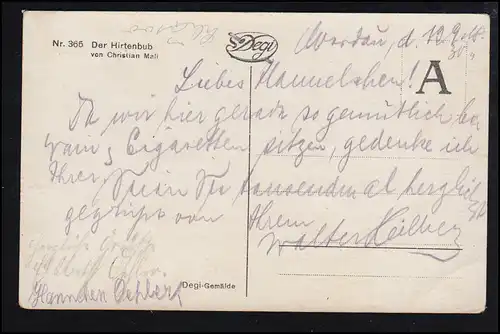 Nr. 366 Der Hirtenbub
von Christian Mali
Degi
Werdau, d. 12.
A
Liebes Hannelchen!
Da wir hier gerade so gemütlich bei
Wein, Cigaretten sitzen, gedenke ich
Ihrer. Seien Sie tausendmal herzlichst
gegrüßt von Ihrem
Walter
Grüße
Hannchen
Degi-Gemälde